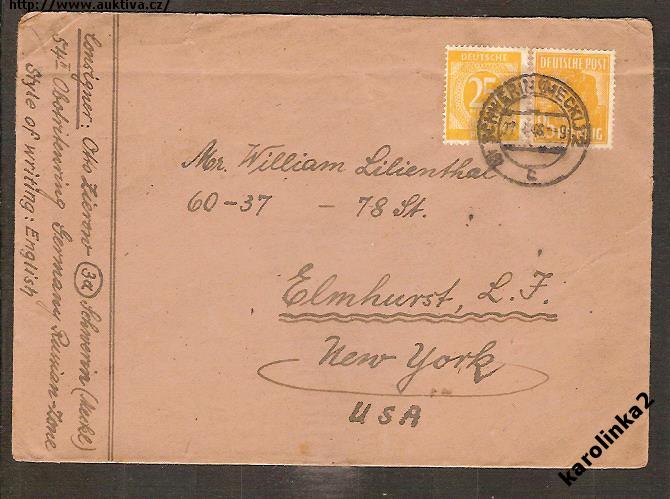 http://www.auktiva.cz/
Consigner: Otto Zierow (3a) Schwerin (Meckl)
54II Obotritenring Germany, Russian-Zone
Style of writing: English
DEUTSCHE
25
DEUTSCHE POST
SCHWERIN (MECKL) 2
c
Mr. William Lilienthal
60-37 - 78 St.
Elmhurst, L. J.
New York
USA
karolinka2